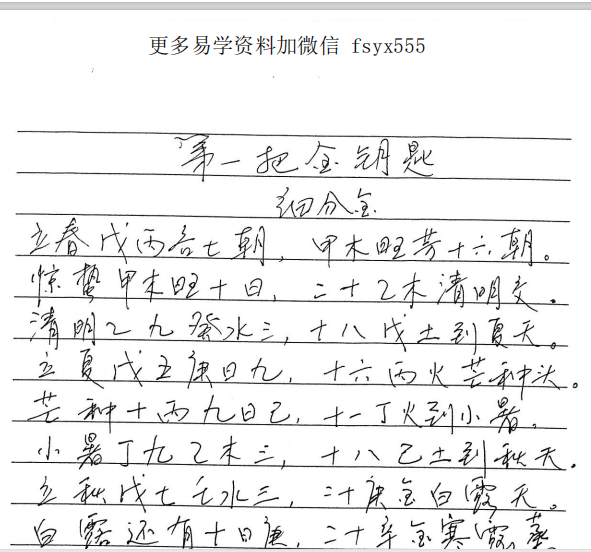 更多易学资料加微信 fsyx555
第一把金钥匙
细分金
立春戊丙各七朝，甲木旺芳十六朝。
惊蛰甲木旺十日，二十乙木清明交。
清明乙九癸水三，十八戊土到夏天。
立夏戊五庚日九，十六丙火芒种头。
芒种十丙九日己，十一丁火到小暑。
小暑丁九乙木三，十八己土到秋天。
立秋戊七壬水三，二十庚金白露天。
白露还有十日庚，二十辛金寒露